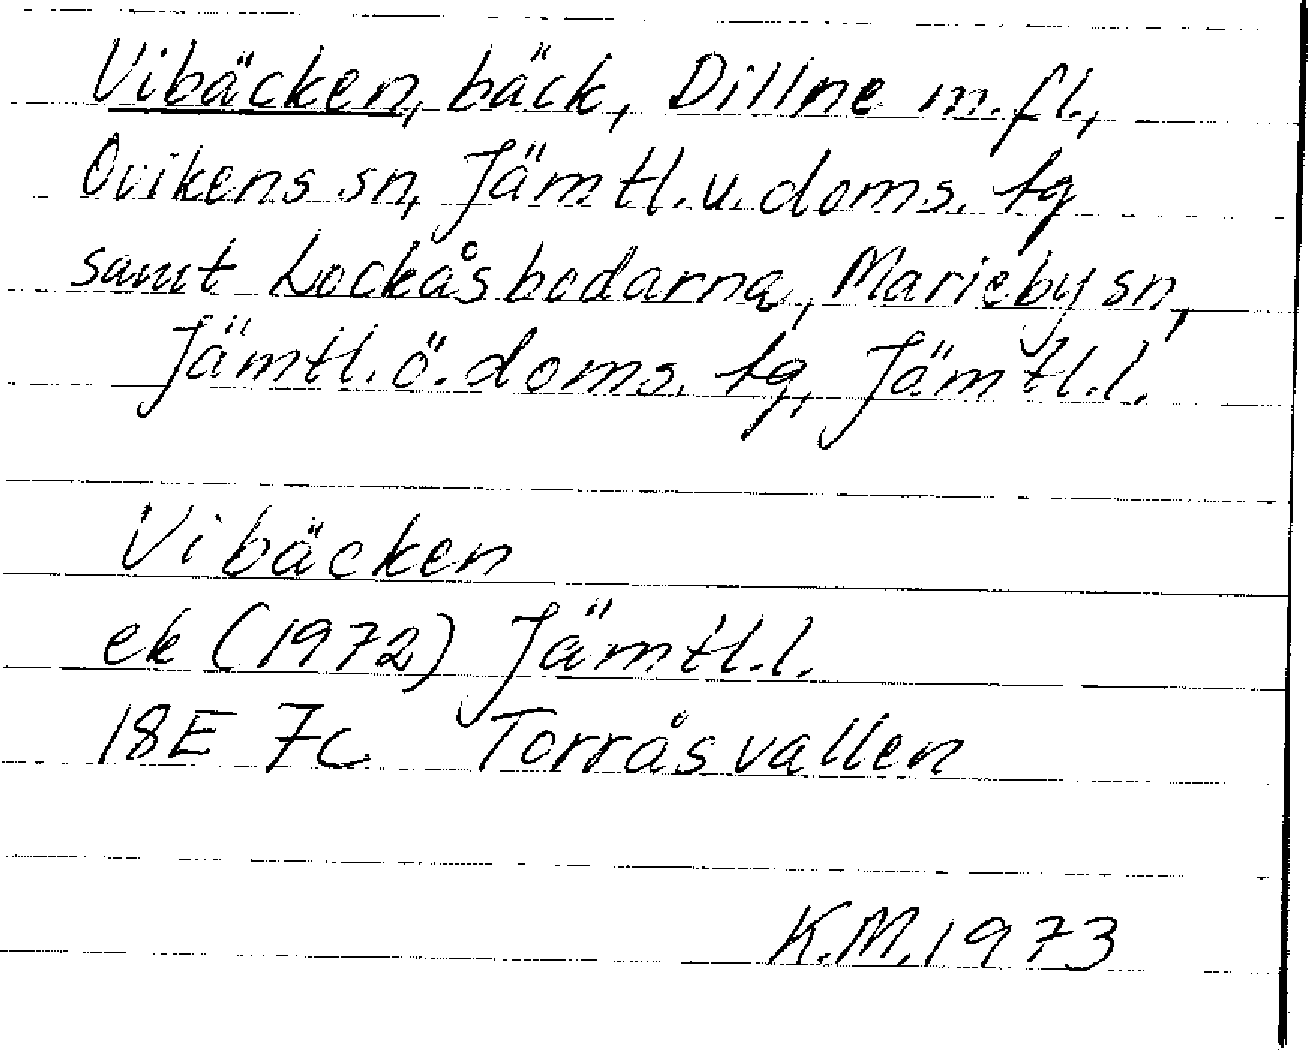 Vibäcken, bäck, Dillne m.fl.,
Ovikens sn, Jämtl.v.doms. tg
samt Lockåsbodarna, Marieby sn,
Jämtl.ö.doms. tg, Jämtl.l.
Vibäcken
ek (1972) Jämtl.l.
18E 7c Torråsvallen
K.M.1973